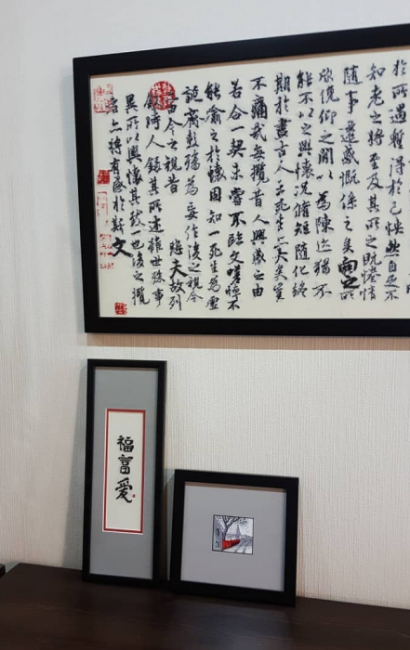 於所遇暫得於己快然自足不
知老之將至及其所之既惓情
隨事遷感慨係之矣向之所
欣俛仰之閒以為陳迹猶不
能不以之興懷況脩短隨化終
期於盡古人云死生亦大矣豈
不痛哉每攬昔人興感之由
若合一契未嘗不臨文嗟悼不
能喻之於懷固知一死生為虛
誕齊彭殤為妄作後之視今
由今之視昔悲夫故列
敘時人錄其所述雖世殊事
異所以興懷其致一也後之攬
者亦將有感於斯文
福富愛